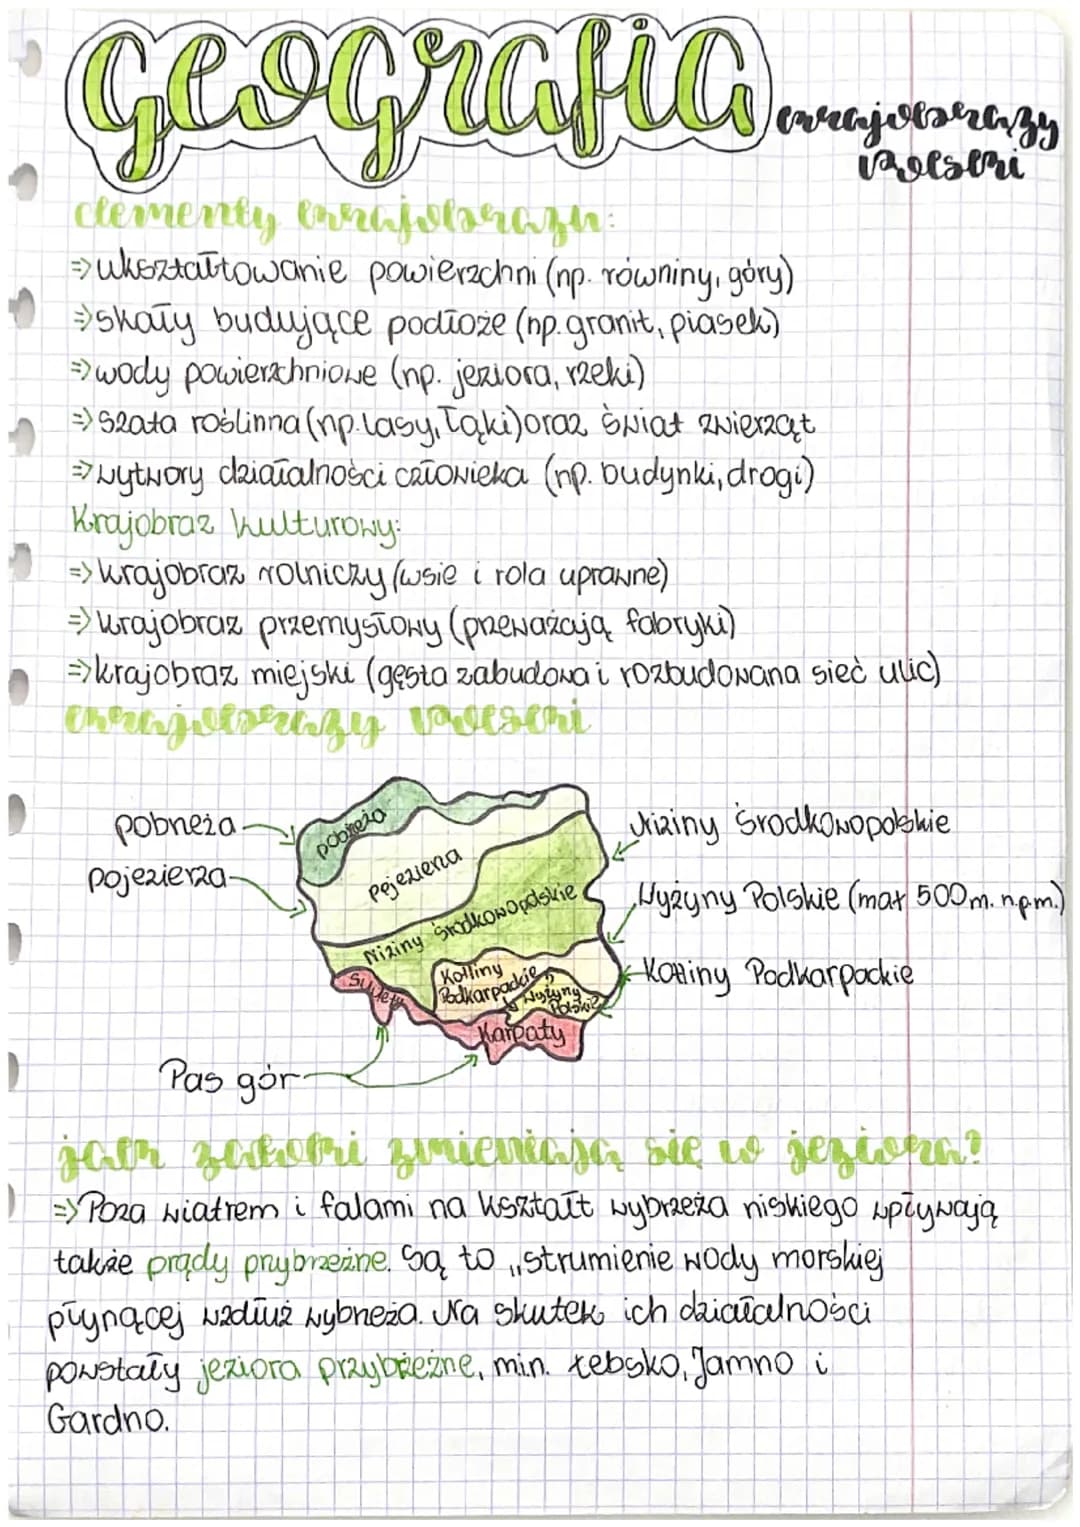 Geografia
krajobrazy
Polski
elementy krajobrazu:
⇒ukształtowanie powierzchni (np. równiny, góry)
⇒skały budujące podłoże (np. granit, piasek)
⇒wody powierzchniowe (np. jeziora, rzeki)
⇒szata roślinna (np. lasy, łąki) oraz świat zwierząt
⇒wytwory działalności człowieka (np. budynki, drogi)
Krajobraz kulturowy:
⇒krajobraz rolniczy (wsie i rola uprawne)
⇒krajobraz przemysłowy (przeważają fabryki)
⇒krajobraz miejski (gęsta zabudowa i rozbudowana sieć ulic)
krajobrazy Polski
pobrzeża
pojezierza
pobrzeża
Pojezierza
Niziny Środkowopolskie
Sudety
Kotliny
Podkarpackie
Wyżyny
Polskie
Karpaty
Niziny Środkowopolskie
Wyżyny Polskie (max 500m. n.p.m.)
Kotliny Podkarpackie
Pas gór
jak zatoki zmieniają się w jeziora?
⇒Poza wiatrem i falami na kształt wybrzeża niskiego wpływają
także prądy przybrzeżne. Są to „strumienie wody morskiej
płynącej wzdłuż wybrzeża. Na skutek ich działalności
powstały jeziora przybrzeżne, min. Łebsko, Jamno i
Gardno.